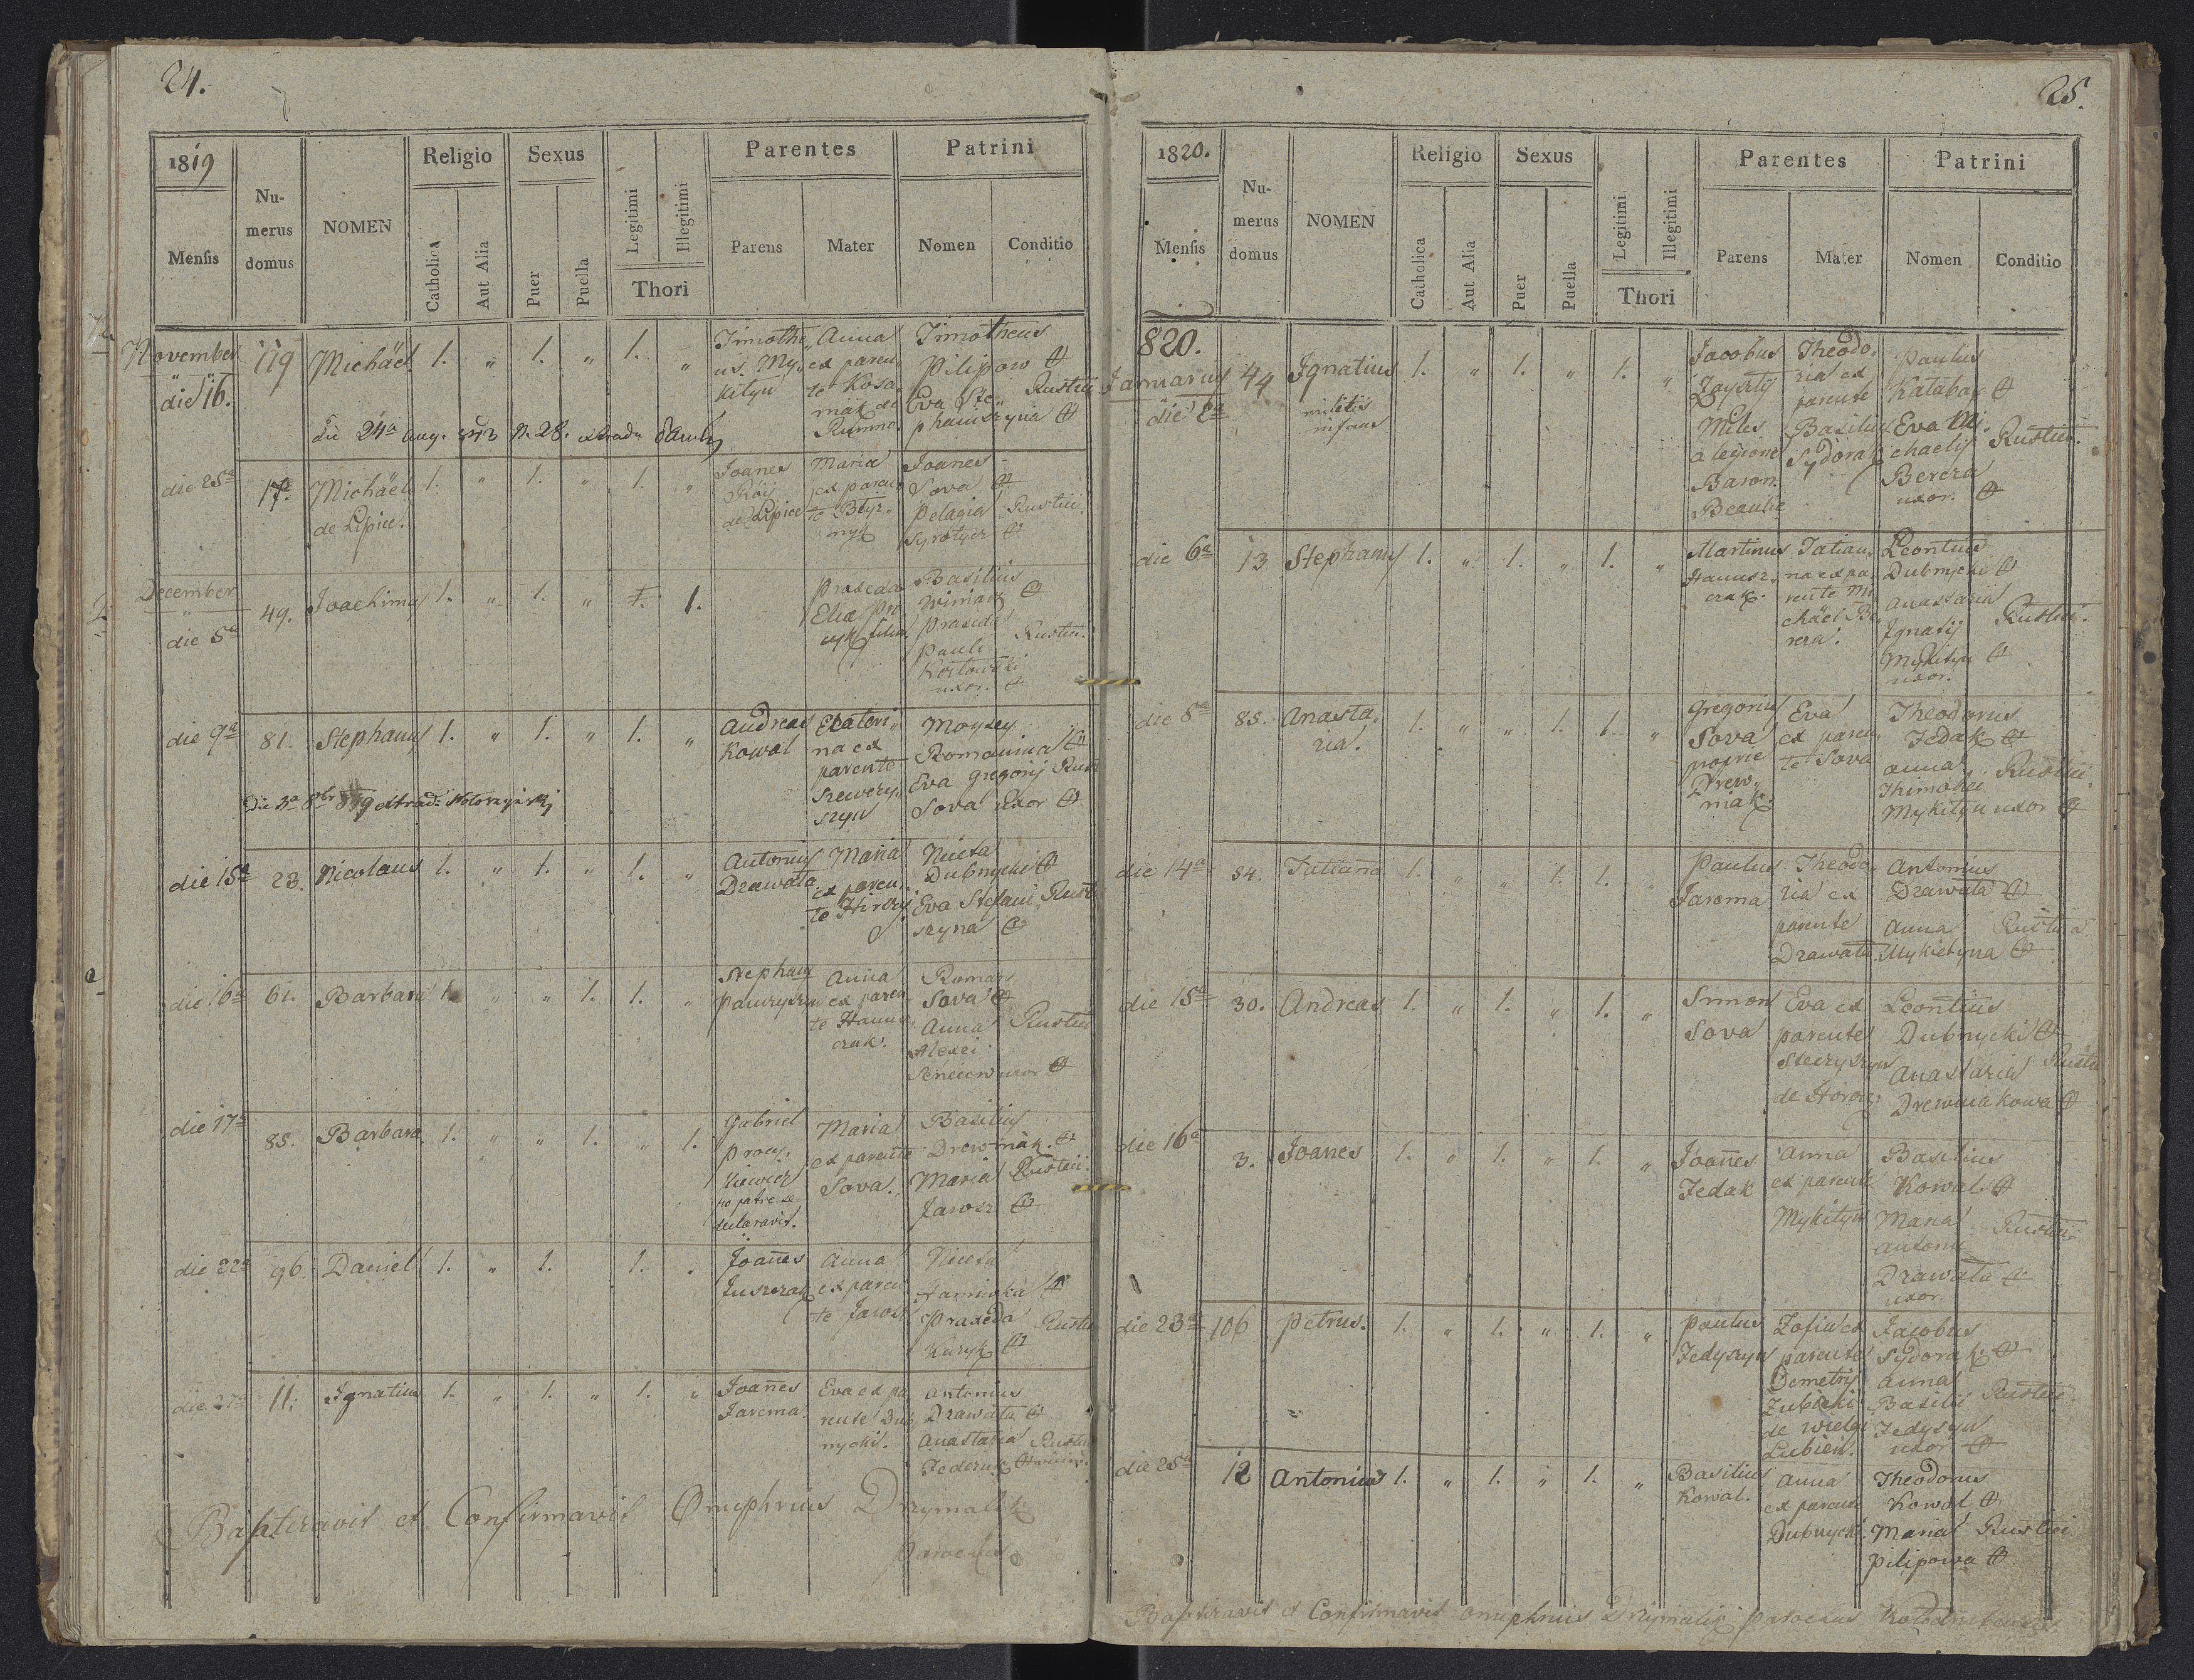 24.
1819
Mensis
Nu-
merus
domus
NOMEN
Religio
Catholica
Aut Alia
Sexus
Puer
Puella
Legitimi
Illegitimi
Thori
Parentes
Parens
Mater
Patrini
Nomen
Conditio
November
die 16.
119
Michäel
1. " 1. " 1. "
Timothe
us. My
kityn
Anna
ex paren
te Kosa
mak de
Rumno
Timotheus
Pilipow
Eva Ste
phaniszyna
Rustici
die 24a aug.
N. 28.
die 25a
17.
Michäel
de Lipice.
1. " 1. " 1. "
Joanes
de Lipice
Maria
ex paren
te
Joanes
Sova
Pelagia
Rustici.
December
die 5a
49.
Joachimus
1. " 1. " 1. 1.
Praxeda
Elia
filia
Basilius
Winiarz
Praxeda
Pauli
Kozlowski
uxor.
Rustici.
die 9a
81.
Stephanus
1. " 1. " 1. "
Andreas
Kowal
Ekateri
na ex
parente
Szewczy
szyn
Moysey
Romanina
Eva Gregorij
Sova uxor
Rust
die 15a
23.
Nicolaus
1. " 1. " 1. "
Antonius
Drawata
Maria
ex paren
te
Niceta
Dubnycki
Eva Stefani
szyna
Rust
die 16a
61.
Barbara
1. " " 1. 1. "
Stephanus
Anna
ex paren
te Hanus
czak.
Roman
Sova
Anna
Alexei
uxor
Rustici
die 17a
85.
Barbara
1. " " 1. " 1.
Gabriel
Procy
kiewicz
patre se
declaravit.
Maria
ex parente
Sova.
Basilius
Drewniak.
Maria
Jarosz
Rustici.
die 22a
96.
Daniel
1. " 1. 1. "
Joannes
Juszczak
Anna
ex paren
te Jarosz
Niceta
Praxeda
Kuzyk
Rustici
die 27a
11.
Ignatius
1. " 1. " 1. "
Joannes
Jarema.
Eva ex pa
rente Dub
nycki.
Antonius
Drawata
Anastazia
Rustici
Baptizavit et Confirmavit Onuphrius Drymalik
Parochus
25.
1820.
Mensis
Nu-
merus
domus
NOMEN
Religio
Catholica
Aut Alia
Sexus
Puer
Puella
Legitimi
Illegitimi
Thori
Parentes
Parens
Mater
Patrini
Nomen
Conditio
820.
Januarius
die 2a
44
Ignatius
militis
infans
1. " 1. " 1. "
Jacobus
Miles
a legione
Baron.
Theodo
ria ex
parente
Basilius
Sydorak
Paulus
Katabay
Eva Mi
chaelis
Bereza
uxor.
Rustici.
die 6a
13
Stephanus
1. " 1. " 1. "
Martinus
Hanusz
czak.
Tatian
na ex pa
rente Mi
chäel Be
reza.
Leontius
Dubnycki
Anastazia
Ignatij
Mykityn
uxor.
Rustici.
die 8a
85.
Anasta
zia.
1. " " 1. 1. "
Gregorius
Sova
proprie
Drew
niak.
Eva
ex paren
te Sova
Theodorus
Fedak
Anna
Thimothei
Mykityn uxor
Rustici.
die 14a
54.
Tatiana
1. " " 1. 1. "
Paulus
Jarema
Theodo
ria ex
parente
Drawata
Antonius
Drawata
Anna
Mykietyna
Rustici
die 15a
30.
Andreas
1. " 1. " 1. "
Simon
Sova
Eva ex
parente
Steczyszyn
Leontius
Dubnycki
Anastazia
Drewniakowa
Rustici
die 16a
3.
Joanes
1. " 1. " 1. "
Joannes
Fedak
Anna
ex parente
Mykityn
Basilius
Kowal
Maria
Antoni
Drawata
uxor
Rustici
die 23a
106
Petrus.
1. " 1. " 1. "
Paulus
Fedyszyn
Zofia ex
parente
Demetrij
Zubicki
de Wielgi
Lubień.
Jacobus
Sydorak
Anna
Basilii
Fedyszyn
uxor
Rustici
die 25a
12
Antonius
1. " 1. " 1. "
Basilius
Kowal.
Anna
ex parente
Dubnycki.
Theodorus
Kowal
Maria
Pilipowa
Rustici
Baptizavit et Confirmavit Onuphrius Drymalik Parochus